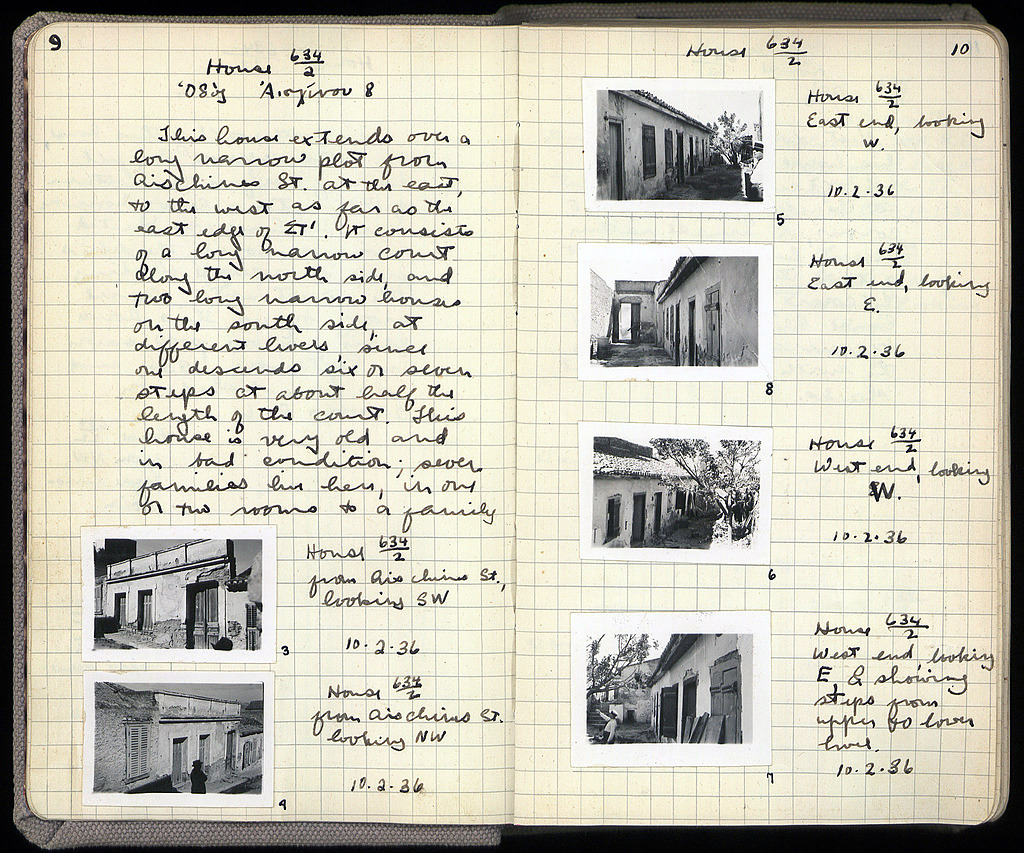 9
House 634/2
Ὁδός Αἰσχίνου 8
This house extends over a
long narrow plot from
Aischines St. at the east,
to the west as far as the
east edge of ΣΤ'. It consists
of a long narrow court
along the north side, and
two long narrow houses
on the south side, at
different levels since
one descends six or seven
steps at about half the
length of the court. This
house is very old and
in bad condition; seven
families live here, in one
or two rooms to a family
House 634/2
from Aischines St.,
looking SW
10.2.36
3
House 634/2
from Aischines St.
looking NW
10.2.36
4
House 634/2
10
House 634/2
East end, looking
W.
10.2.36
5
House 634/2
East end, looking
E.
10.2.36
8
House 634/2
West end, looking
W.
10.2.36
6
House 634/2
West end, looking
E & showing
steps from
upper to lower
level.
10.2.36
7